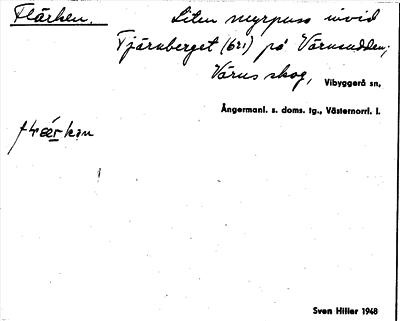 Flärken. Liten myrpuss invid
Tjärnberget (621) på Värnudden;
Värns skog, Vibyggerå sn,
Ångermanl. s. doms. tg., Västernorrl. l.
Sven Hiller 1948